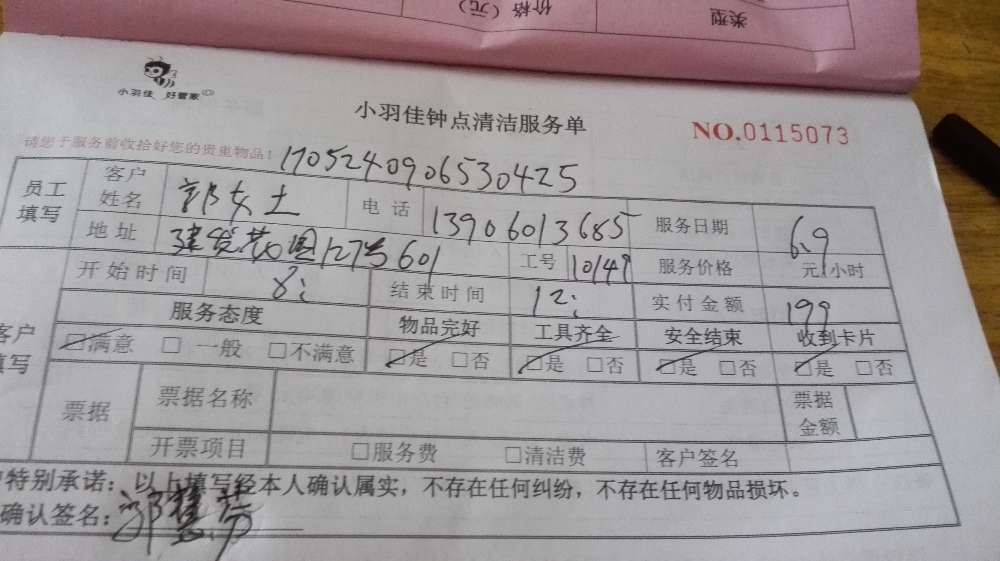 价格(元) 类型
小羽佳 好管家
小羽佳钟点清洁服务单 NO.0115073
请您于服务前收拾好您的贵重物品! 1705240906530425
员工填写 客户姓名 郭女士 电话 13906013685 服务日期 6.9
地址 建发花园127号601 工号 10149 服务价格 元/小时
开始时间 8: 结束时间 12: 实付金额 199
客户填写 服务态度 物品完好 工具齐全 安全结束 收到卡片
☑满意 □一般 □不满意 ☑是 □否 ☑是 □否 ☑是 □否 ☑是 □否
票据 票据名称 票据金额
开票项目 □服务费 □清洁费 客户签名
特别承诺:以上填写经本人确认属实,不存在任何纠纷,不存在任何物品损坏。
确认签名:郭慧芬